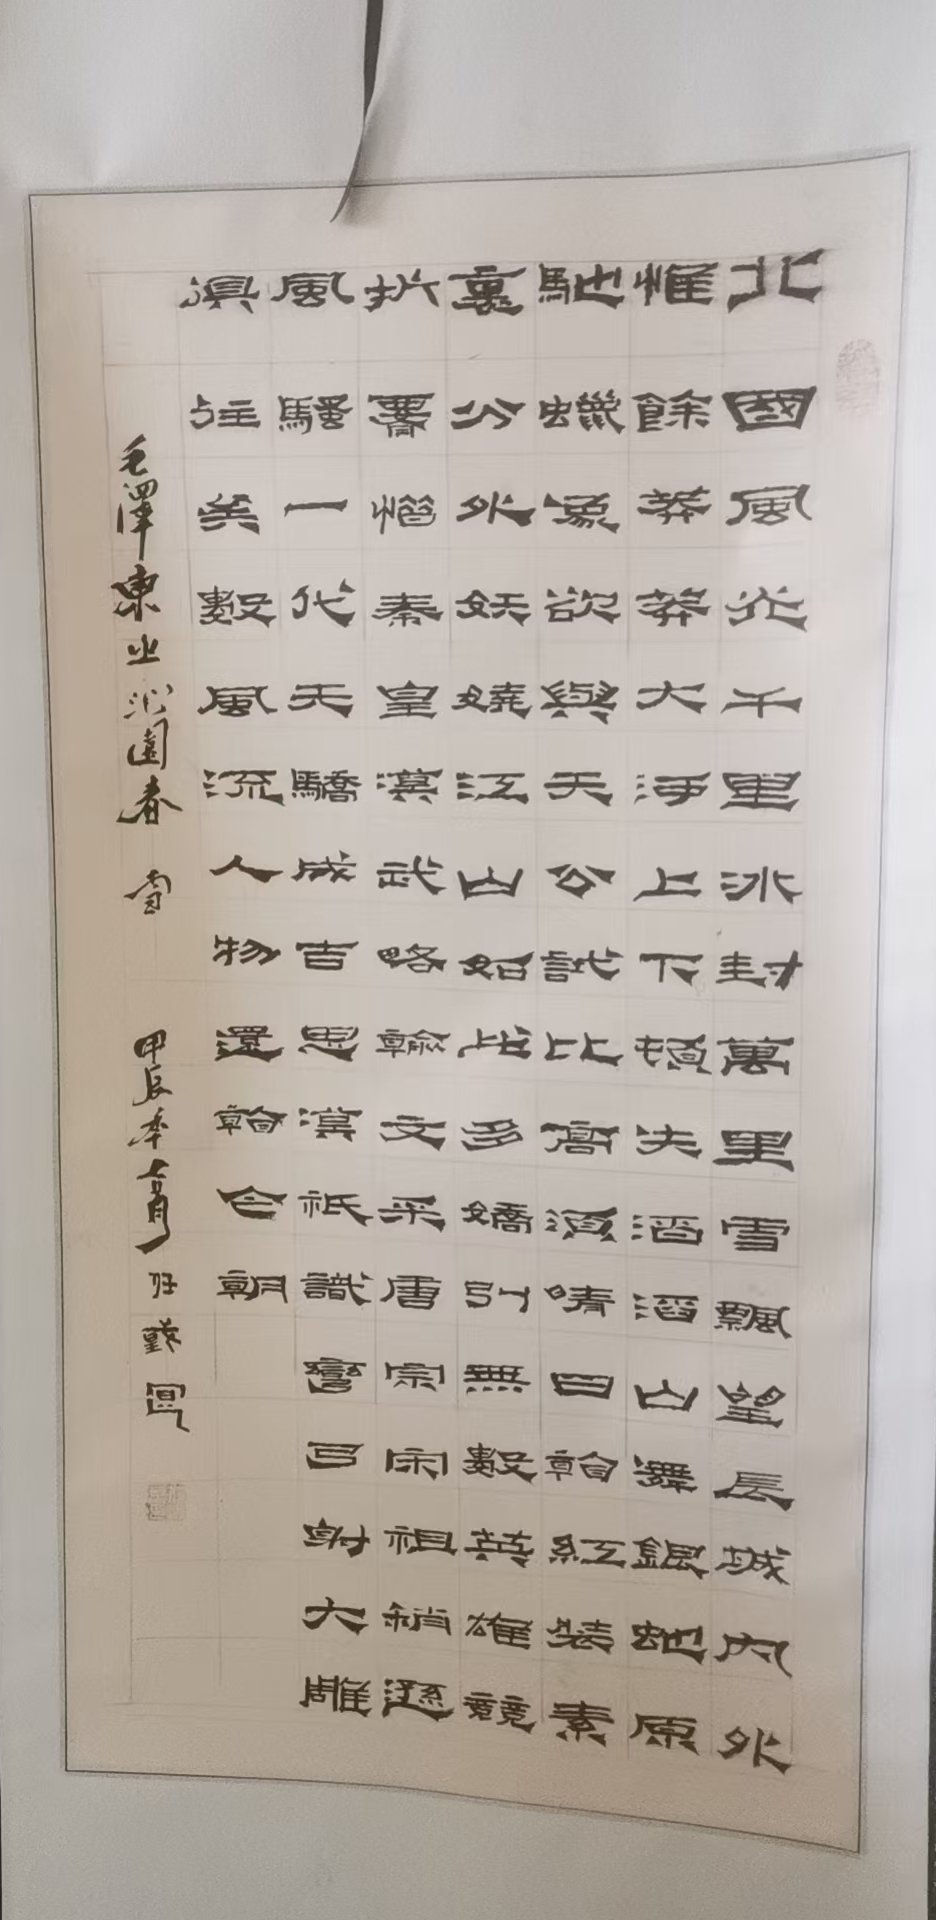 北國風光千里冰封萬里雪飄望長城內外
惟餘莽莽大河上下頓失滔滔山舞銀蛇原
馳蠟象欲與天公試比高須晴日看紅裝素
裹分外妖嬈江山如此多嬌引無數英雄競
折腰惜秦皇漢武略輸文采唐宗宋祖稍遜
風騷一代天驕成吉思漢祇識彎弓射大雕
俱往矣數風流人物還看今朝
毛澤東之沁園春 雪 甲辰年